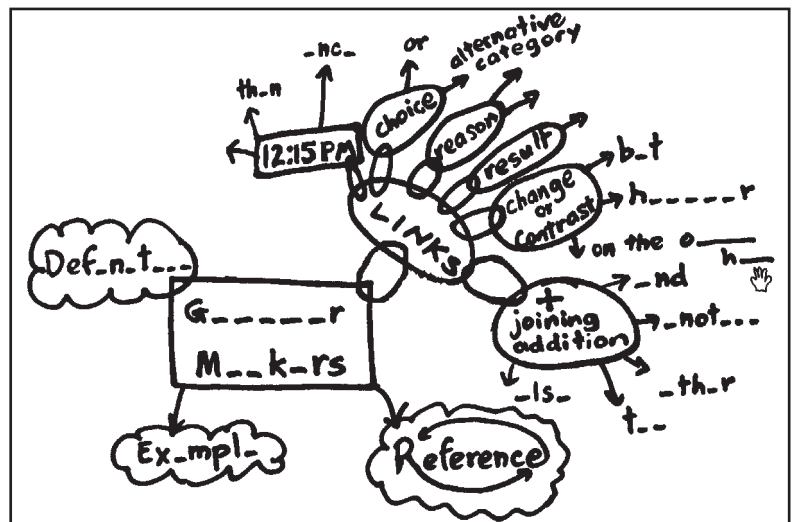 _nc_
or
alternative
category
th_n
12:15 PM
choice
reason
result
b_t
change
or
contrast
h_____r
on the o_____
h___
LINKS
Def_n_t___
G_____r
M__k_rs
+
joining
addition
_nd
_not___
_th_r
t__
_ls_
Ex_mpl_
Reference